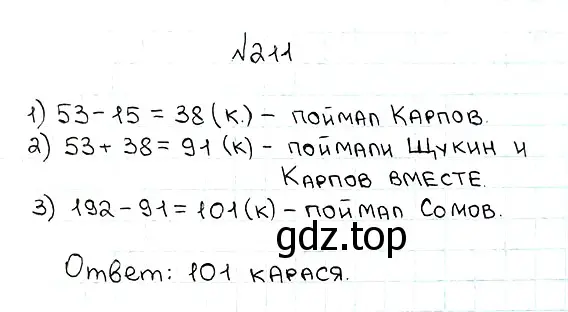 №211
1) 53-15=38(к.) - поймал Карпов.
2) 53+38=91(к) - поймали Щукин и
Карпов вместе.
3) 192-91=101(к) - поймал Сомов.
gdz.top
Ответ: 101 карася.